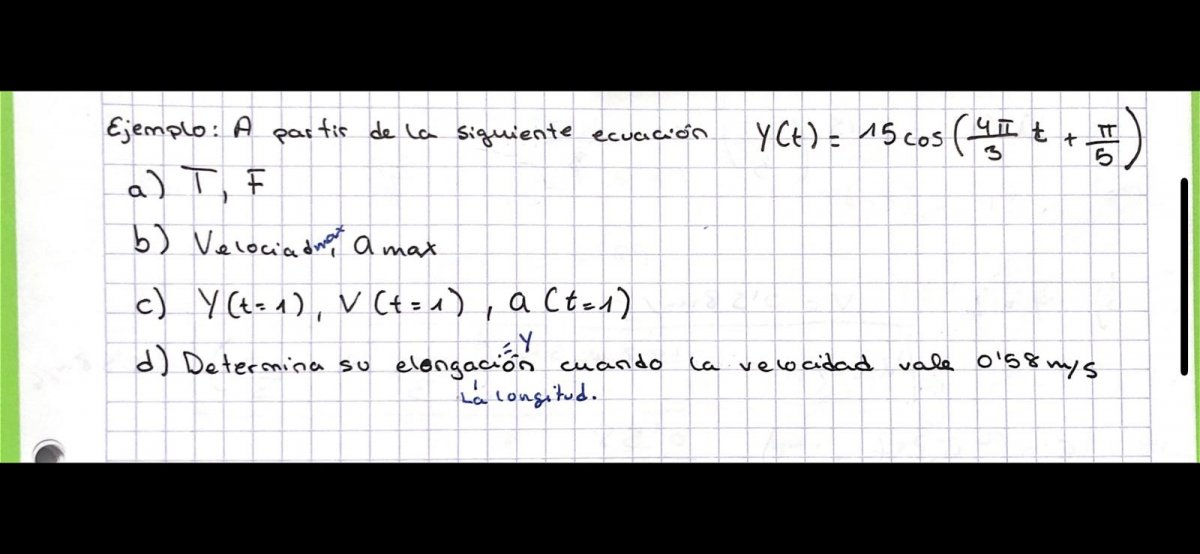 Ejemplo: A partir de la siguiente ecuación Y(t) = 15 cos (4π/3 t + π/5)
a) T, F
b) Velociad max, a max
c) Y(t=1), V(t=1), a(t=1)
=Y
d) Determina su elongación cuando la velocidad vale 0'58 m/s
La longitud.